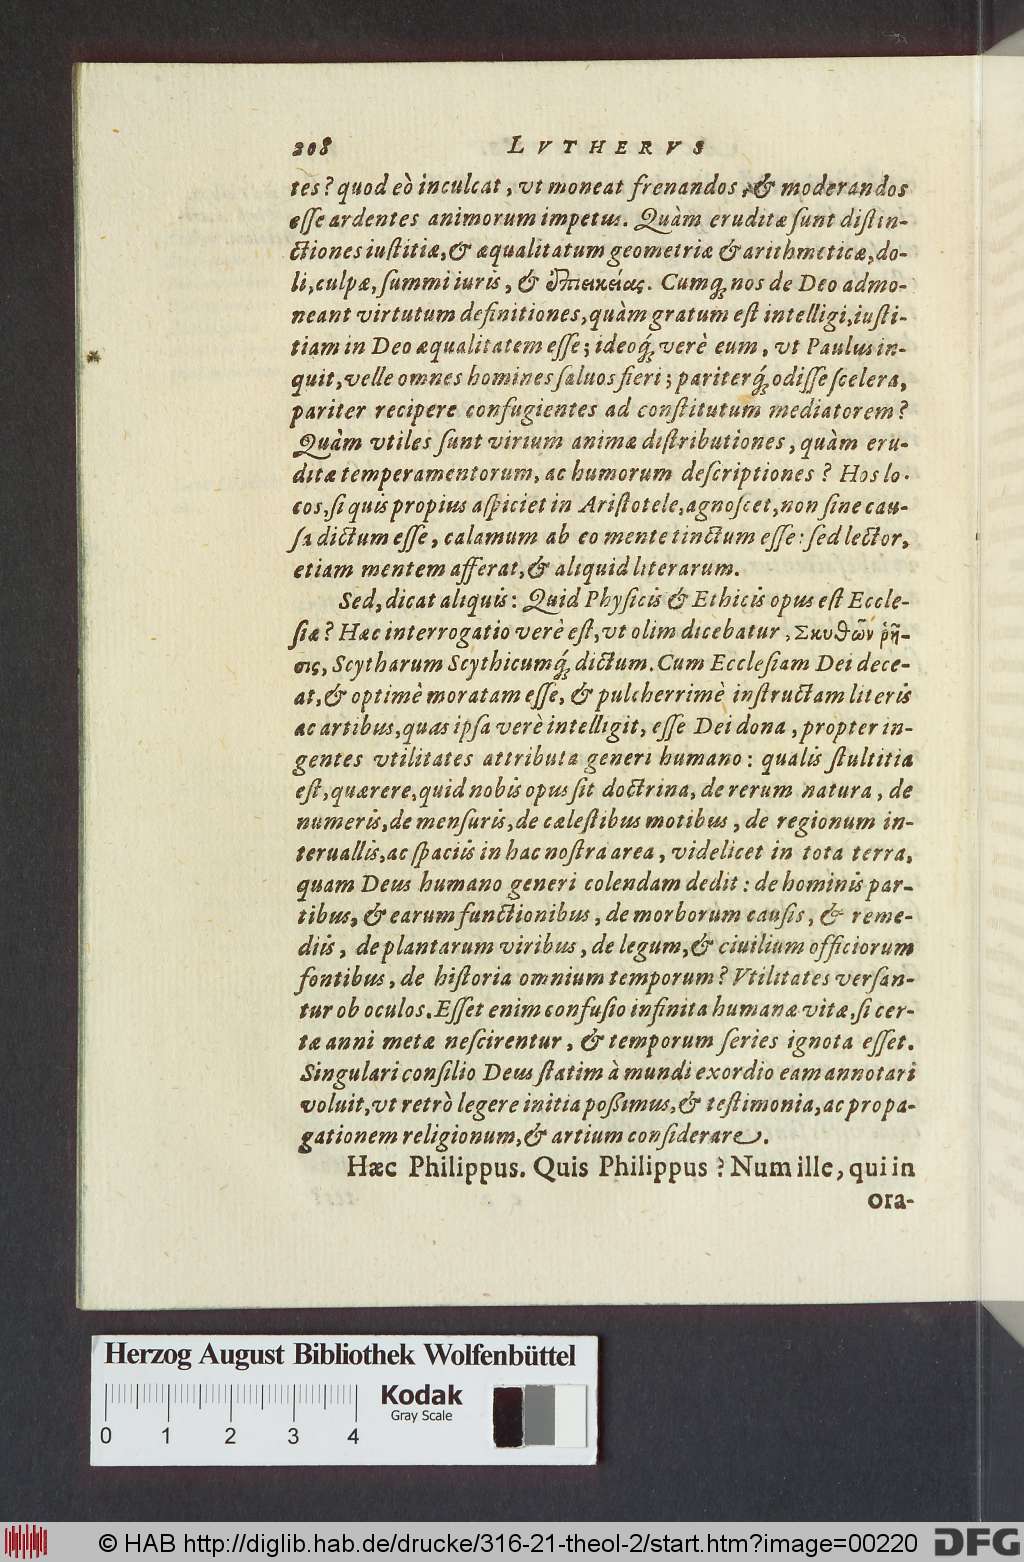 208 LVTHERVS
tes? quod eò inculcat, vt moneat frenandos, & moderandos
esse ardentes animorum impetus. Quàm eruditæ sunt distin-
ctiones iustitiæ, & æqualitatum geometriæ & arithmeticæ, do-
li, culpæ, summi iuris, & ἐπιεικείας. Cumq́; nos de Deo admo-
neant virtutum definitiones, quàm gratum est intelligi, iusti-
tiam in Deo æqualitatem esse; ideoq́; verè eum, vt Paulus in-
quit, velle omnes homines saluos fieri; pariterq́; odisse scelera,
pariter recipere confugientes ad constitutum mediatorem?
Quàm vtiles sunt virium animæ distributiones, quàm eru-
ditæ temperamentorum, ac humorum descriptiones? Hos lo-
cos, si quis propius aspiciet in Aristotele, agnoscet, non sine cau-
sa dictum esse, calamum ab eo mente tinctum esse: sed lector,
etiam mentem afferat, & aliquid literarum.
Sed, dicat aliquis: Quid Physicis & Ethicis opus est Eccle-
siæ? Hæc interrogatio verè est, vt olim dicebatur, Σκυθῶν ῥῆ-
σις, Scytharum Scythicumq́; dictum. Cum Ecclesiam Dei dece-
at, & optimè moratam esse, & pulcherrimè instructam literis
ac artibus, quas ipsa verè intelligit, esse Dei dona, propter in-
gentes vtilitates attributa generi humano: qualis stultitia
est, quærere, quid nobis opus sit doctrina, de rerum natura, de
numeris, de mensuris, de cælestibus motibus, de regionum in-
teruallis, ac spaciis in hac nostra area, videlicet in tota terra,
quam Deus humano generi colendam dedit: de hominis par-
tibus, & earum functionibus, de morborum causis, & reme-
diis, de plantarum viribus, de legum, & ciuilium officiorum
fontibus, de historia omnium temporum? Vtilitates versan-
tur ob oculos. Esset enim confusio infinita humanæ vitæ, si cer-
tæ anni metæ nescirentur, & temporum series ignota esset.
Singulari consilio Deus statim à mundi exordio eam annotari
voluit, vt retrò legere initia poßimus, & testimonia, ac propa-
gationem religionum, & artium considerare.
Hæc Philippus. Quis Philippus? Num ille, qui in
ora-
Herzog August Bibliothek Wolfenbüttel
Kodak
Gray Scale
0 1 2 3 4
© HAB http://diglib.hab.de/drucke/316-21-theol-2/start.htm?image=00220 DFG